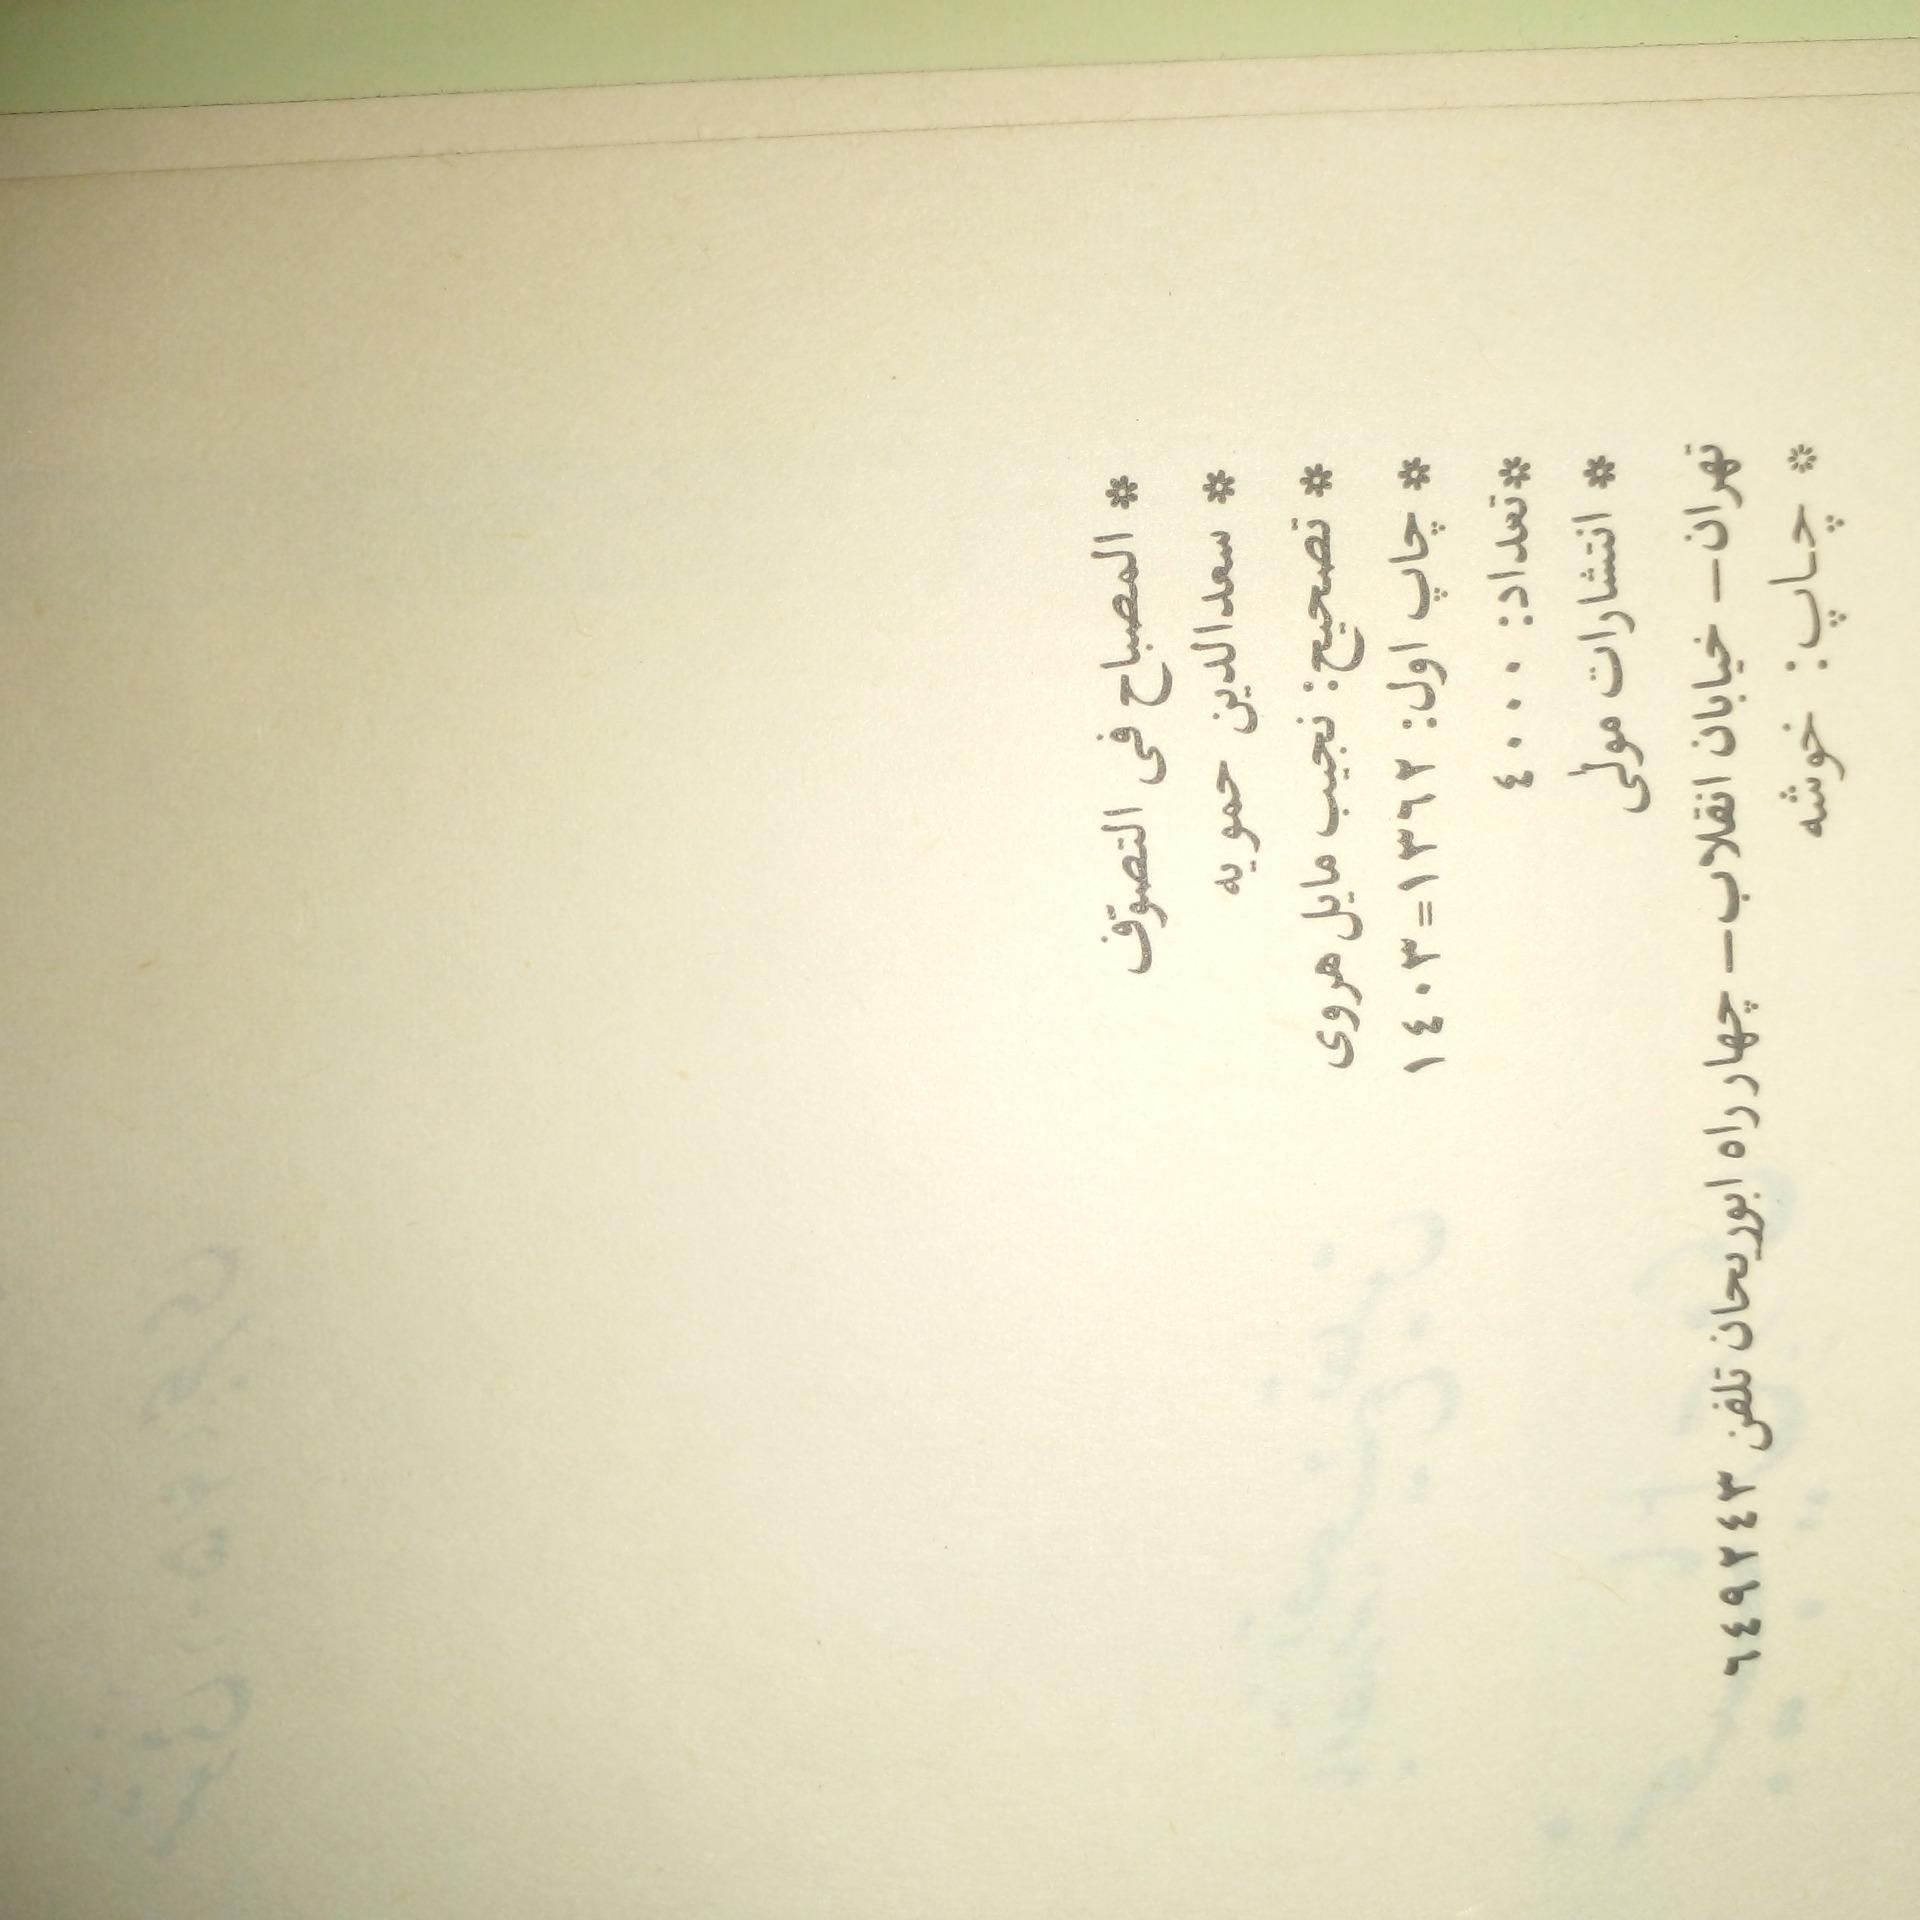 * المصباح فی التصوّف
* سعدالدین حمویه
* تصحیح: نجیب مایل هروی
* چاپ اول: ١٣٦٢=١٤٠٣
*تعداد: ٤٠٠٠
* انتشارات مولی
تهران– خیابان انقلاب– چهار راه ابوریحان تلفن ٦٤٩٢٤٣
* چاپ: خوشه